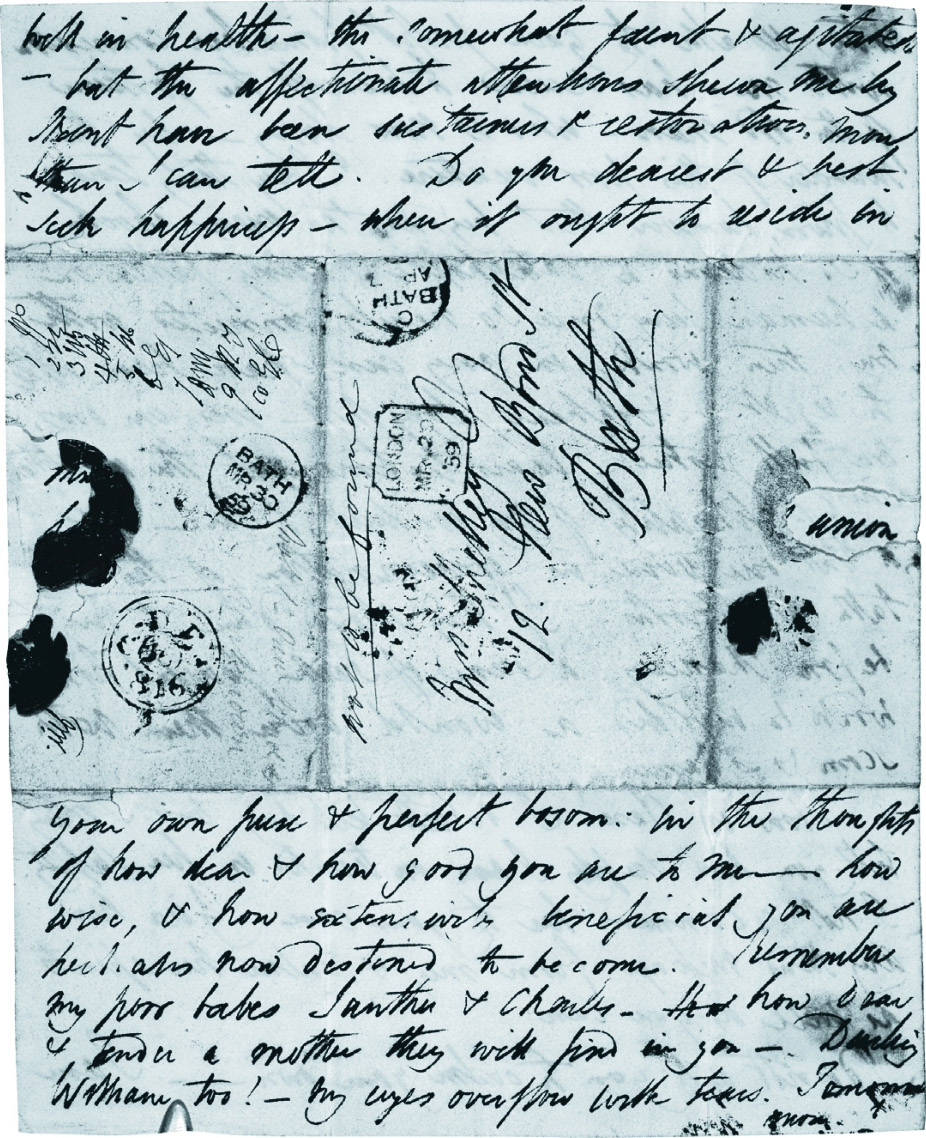 well in health - tho somewhat faint & agitated
- but the affectionate attentions shewn me by
Hunt have been sustainers & restoratives more
than I can tell. Do you dearest & best
seek happiness - where it ought to reside in
not to be found
BATH
LONDON
MR 29
59
BATH
816
Mrs Shelley
12. New Bond St
Bath
union
your own pure & perfect bosom: in the thoughts
of how dear & how good you are to me — how
wise, & how extensively beneficial you are
perhaps now destined to become. Remember
my poor babes Ianthe & Charles - how dear
& tender a mother they will find in you — Darling
William too! - My eyes overflow with tears. Tomorrow
more.